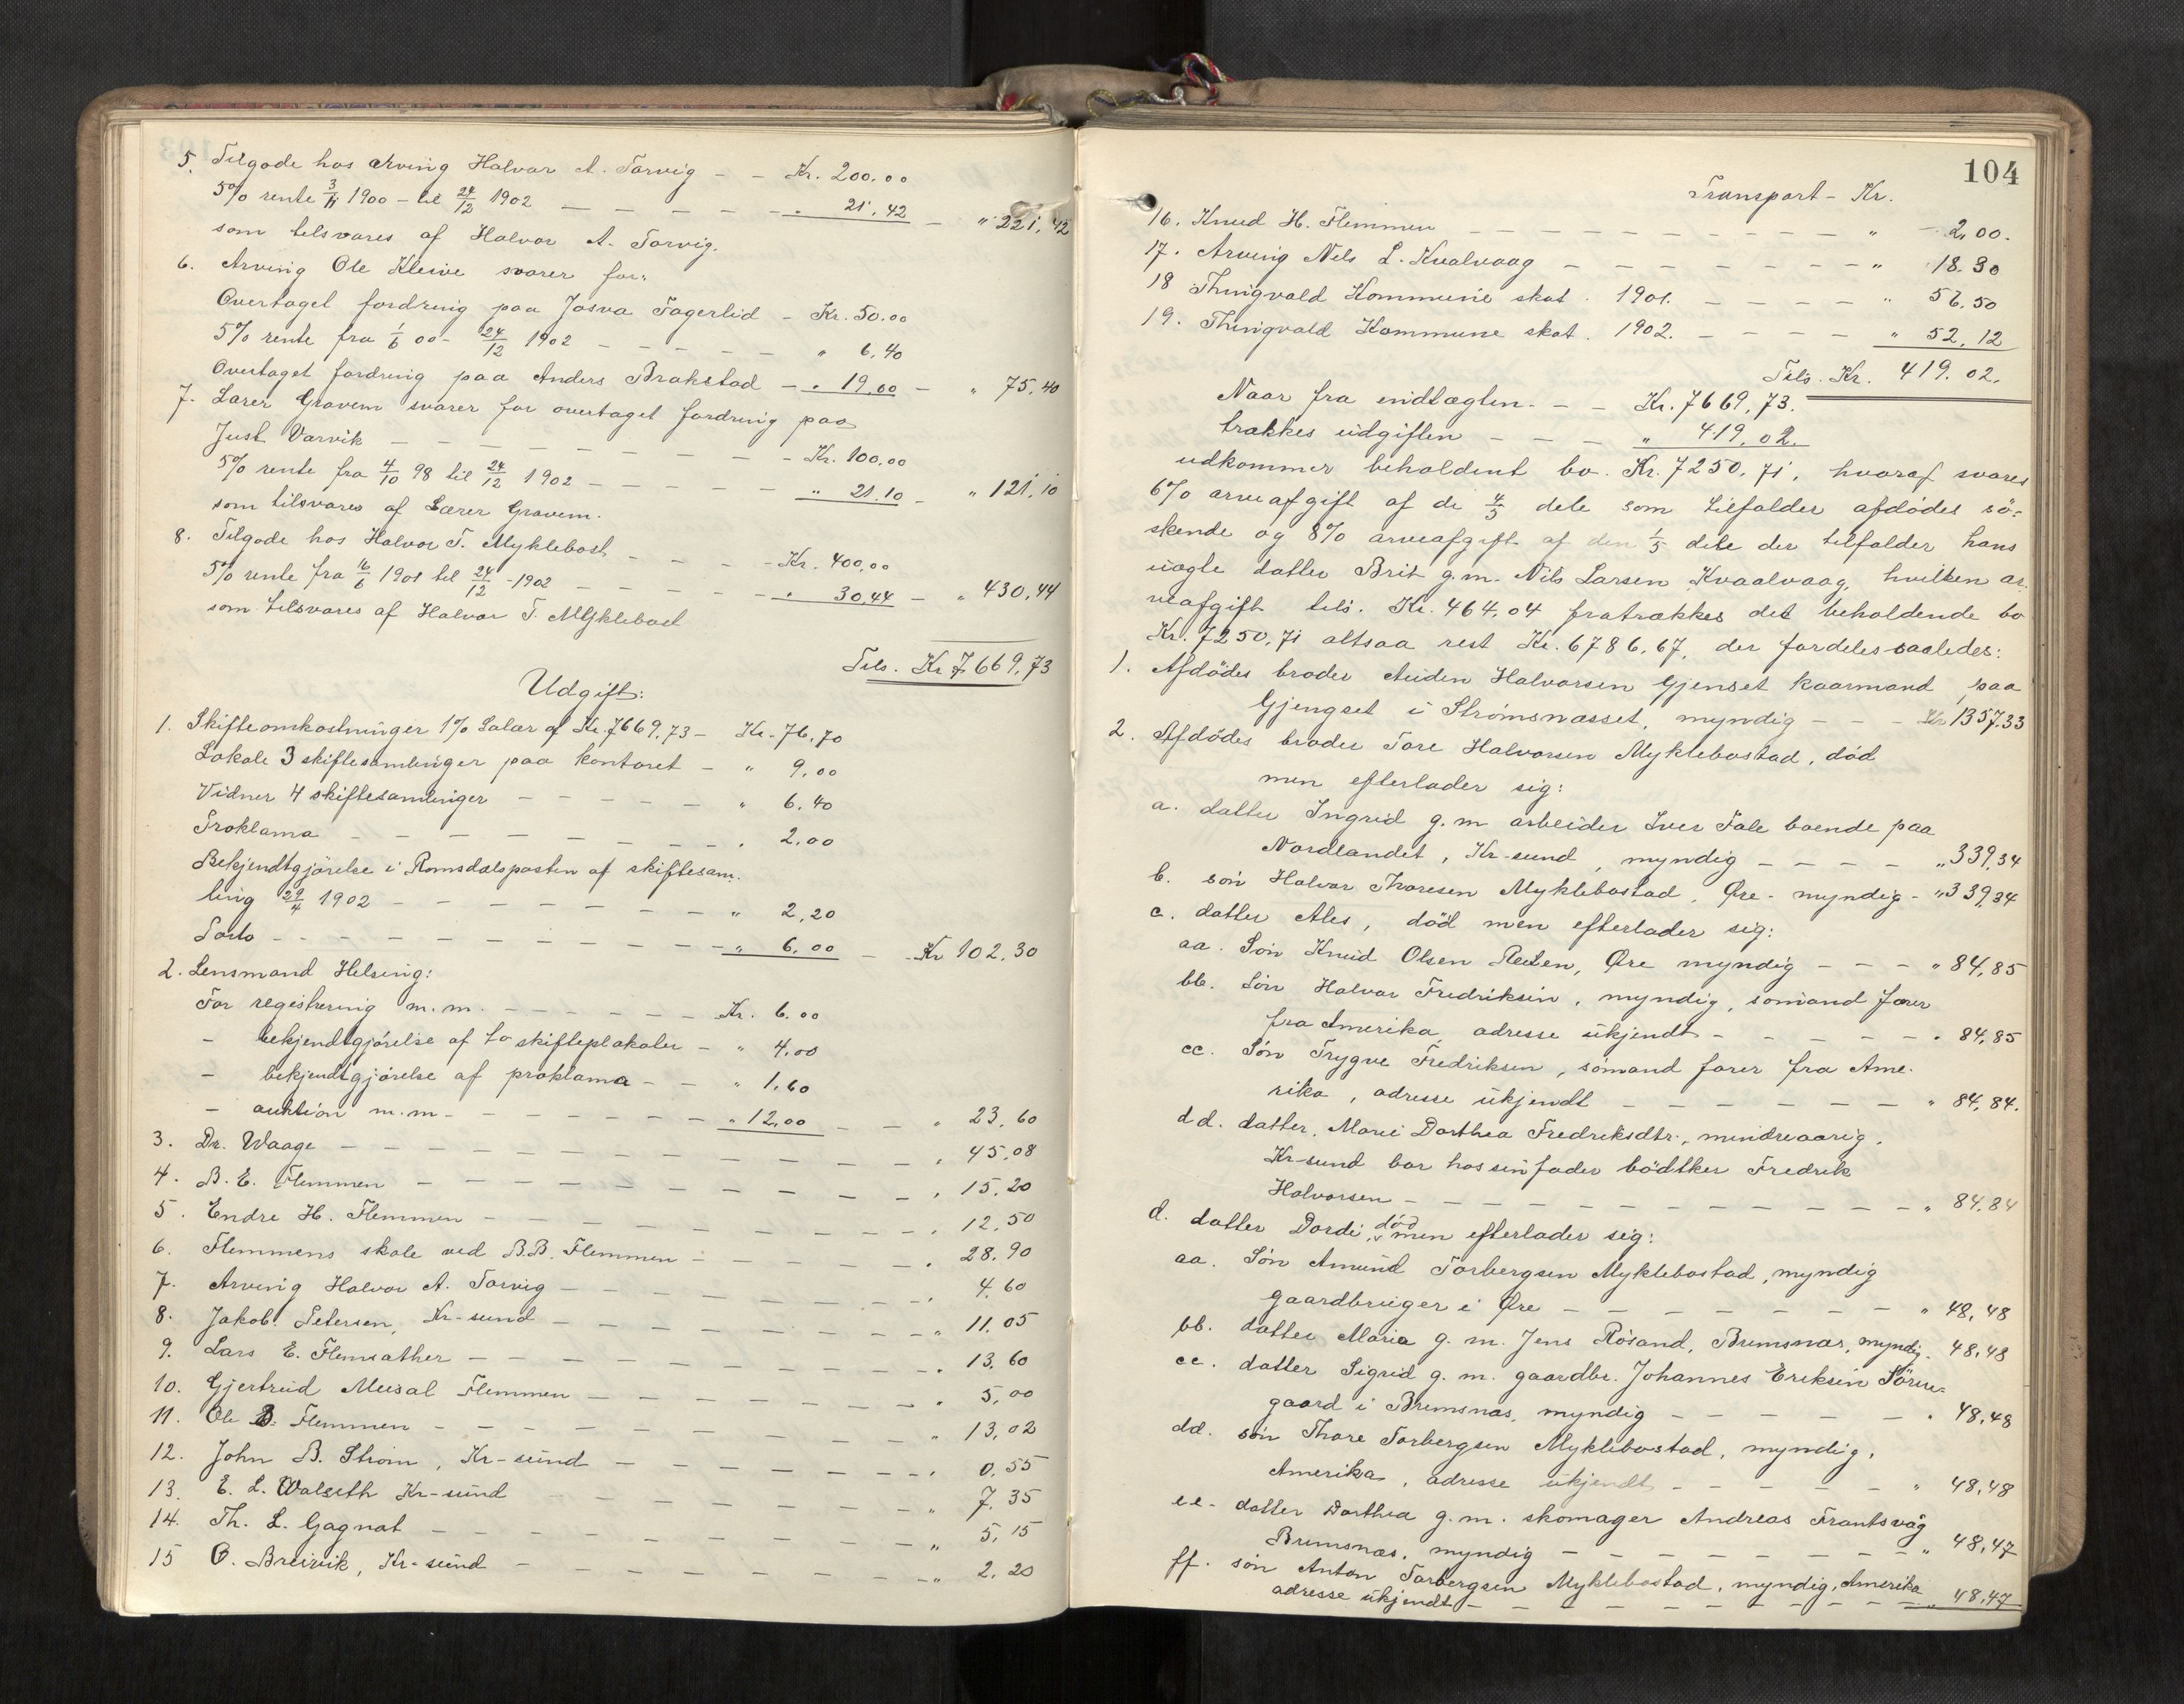 5. Tilgode hos Arving Halvar A. Torvig - - Kr. 200.00
5% rente 3/11 1900 - til 24/12 1902 - - - - - " 21,42 - " 221,42
som tilsvares af Halvor A. Torvig.
6. Arving Ole Kleive svarer for:
Overtaget fordring paa Josva Fagerlid - Kr. 50.00
5% rente fra 1/6 00 - 24/12 1902 - - - - - " 6,40
Overtaget fordring paa Anders Brakstad - " 19,00 - " 75,40
7. Lærer Gravem svarer for overtaget fordring paa
Just Varvik - - - - - - - - Kr. 100,00
5% rente fra 4/10 98 til 24/12 1902 - - - - - " 21.10 - " 121,10
som tilsvares af Lærer Gravem.
8. Tilgode hos Halvor T. Myklebost - - - - Kr. 400,00
5% rente fra 16/6 1901 til 24/12 - 1902 - - - - - " 30,44 - " 430,44
som tilsvares af Halvor T. Myklebost
Tils. Kr 7669,73
Udgift:
1. Skifteomkostninger 1% Salær af Kr. 7669,73 - Kr. 76,70
Lokale 3 skiftesamlinger paa kontoret - " 9,00
Vidner 4 skiftesamlinger - - - - - " 6.40
Proklama - - - - - - - " 2,00
Bekjendtgjörelse i Romsdalsposten af skiftesam-
ling 29/4 1902 - - - - - - - " 2,20
Porto - - - - - - - - - " 6,00 - Kr 102,30
2. Lensmand Helsing:
For registrering m.m. - - - - - - Kr. 6.00
- bekjendtgjörelse af to skifteplakater - " 4,00
- bekjendtgjörelse af proklama - - " 1,60
- auktion m.m - - - - - - - " 12,00 - - " 23,60
3. Dr. Waage - - - - - - - - - - " 45,08
4. B. E. Flemmen - - - - - - - - - " 15,20
5. Endre H. Flemmen - - - - - - - - " 12,50
6. Flemmens skole ved B.B. Flemmen - - - - - " 28.90
7. Arving Halvor A. Torvig - - - - - - - " 4,60
8. Jakob Petersen, Kr-sund - - - - - - - " 11.05
9. Lars E. Flemsæther - - - - - - - - " 13,60
10. Gjertrud Meisal Flemmen - - - - - - " 5,00
11. Ole B. Flemmen - - - - - - - - - " 13,02
12. John B. Ström, Kr-sund - - - - - - - " 0,55
13. E. L. Walseth Kr-sund - - - - - - - " 7,35
14. Th. L. Gagnat - - - - - - - - - " 5,15
15 O. Breivik, Kr-sund - - - - - - - " 2,20
104
Transport - Kr.
16. Knud H. Flemmen - - - - - - - - - " - 2,00.
17. Arving Nels L. Kvalvaag - - - - - - - " 18.30
18 Thingvold Kommune skat. 1901. - - - - " 56,50
19. Thingvold Kommune skat. 1902. - - - - " 52,12
Tils. Kr. 419.02.
Naar fra indtægten - - Kr. 7669,73.
trækkes udgiften - - - " 419,02.
udkommer beholdent bo Kr. 7250,71, hvoraf svares
6% arveafgift af de 4/5 dele som tilfalder afdödes sö-
skende og 8% arveafgift af den 1/5 dele der tilfalder hans
uægte datter Brit g.m. Nils Larsen Kvaalvaag, hvilken ar-
veafgift tils. Kr. 464,04 fratrækkes det beholdende bo
Kr. 7250,71 altsaa rest Kr. 6786,67, der fordeles saaledes:
1. Afdödes broder Auden Halvorsen Gjenset kaarmand paa
Gjengset i Strömsnæsset, myndig - - - Kr 1357,33
2. Afdödes broder Tore Halvorsen Myklebostad, död
men efterlader sig:
a. datter Ingrid g.m arbeider Iver Fale boende paa
Nordlandet, Kr-sund, myndig - - - - " 339,34
b. sön Halvor Thoresen Myklebostad, Øre - myndig - " 339,34
c. datter Ales, död men efterlader sig:
aa. Sön Knud Olsen Reiten, Øre myndig - - - " 84,85
bb. Sön Halvar Fredriksen, myndig, sömand farer
fra Amerika, adresse ukjendt - - - - - - " 84,85
cc. Sön Trygve Fredriksen, sömand farer fra Ame-
rika, adresse ukjendt - - - - - - - " 84,84.
dd. datter, Marie Dorthea Fredriksdtr., mindreaarig,
Kr-sund bor hos sin fader bödtker Fredrik
Halvorsen - - - - - - - - - - " 84,84
d. datter Dordi, död men efterlader sig:
aa. Sön Amund Torbergsen Myklebostad, myndig
gaardbruger i Øre - - - - - - - - " 48,48
bb. datter Maria g. m. Jens Rösand, Bremsnæs, myndig. 48,48
cc. datter Sigrid g. m. gaardbr. Johannes Eriksen Sören-
gaard i Bremsnæs, myndig - - - - - - " 48,48
dd. sön Thore Torbergsen Myklebostad, myndig,
Amerika, adresse ukjendt - - - - - - " 48,48
ee. datter Dorthea g. m. skomager Andreas Frantsvåg
Bremsnæs, myndig - - - - - - - - " 48,47
ff. sön Anton Torbergsen Myklebostad, myndig, Amerika
adresse ukjendt - - - - - - - - - " 48,47